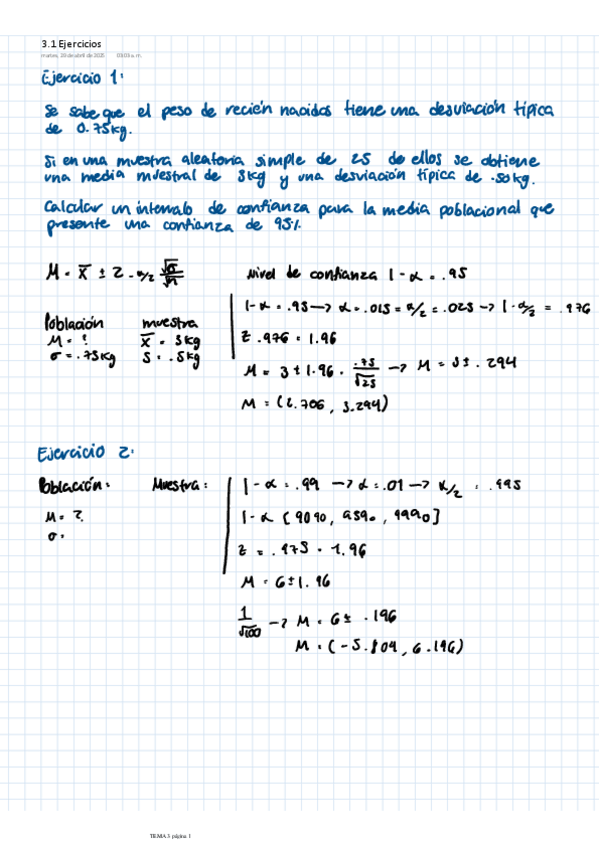 3.1 Ejercicios
martes, 20 de abril de 2021 03:03 a. m.
Ejercicio 1:
Se sabe que el peso de recién nacidos tiene una desviación típica
de 0.75kg.
Si en una muestra aleatoria simple de 25 de ellos se obtiene
una media muestral de 3kg y una desviación típica de .50kg.
Calcular un intervalo de confianza para la media poblacional que
presente una confianza de 95%
M = x̄ ± Z - α/2 √σ/√n
Nivel de confianza 1-α = .95
1-α = .95 → α = .015 = α/2 = .025 → 1-α/2 = .976
Población muestra
M = ? x̄ = 3kg
σ = .75kg S = .5kg
Z .976 = 1.96
M = 3 ± 1.96 · .75/√25 → M = 3 ± .294
M = (2.706, 3.294)
Ejercicio 2:
Población: Muestra:
M = ?
σ =
1-α = .99 → α = .01 → α/2 = .995
1-α [90%, 95%, 99%]
Z = .975 = 1.96
M = 6 ± 1.96
1/√100 → M = 6 ± .196
M = (-5.804, 6.196)
TEMA 3 página 1